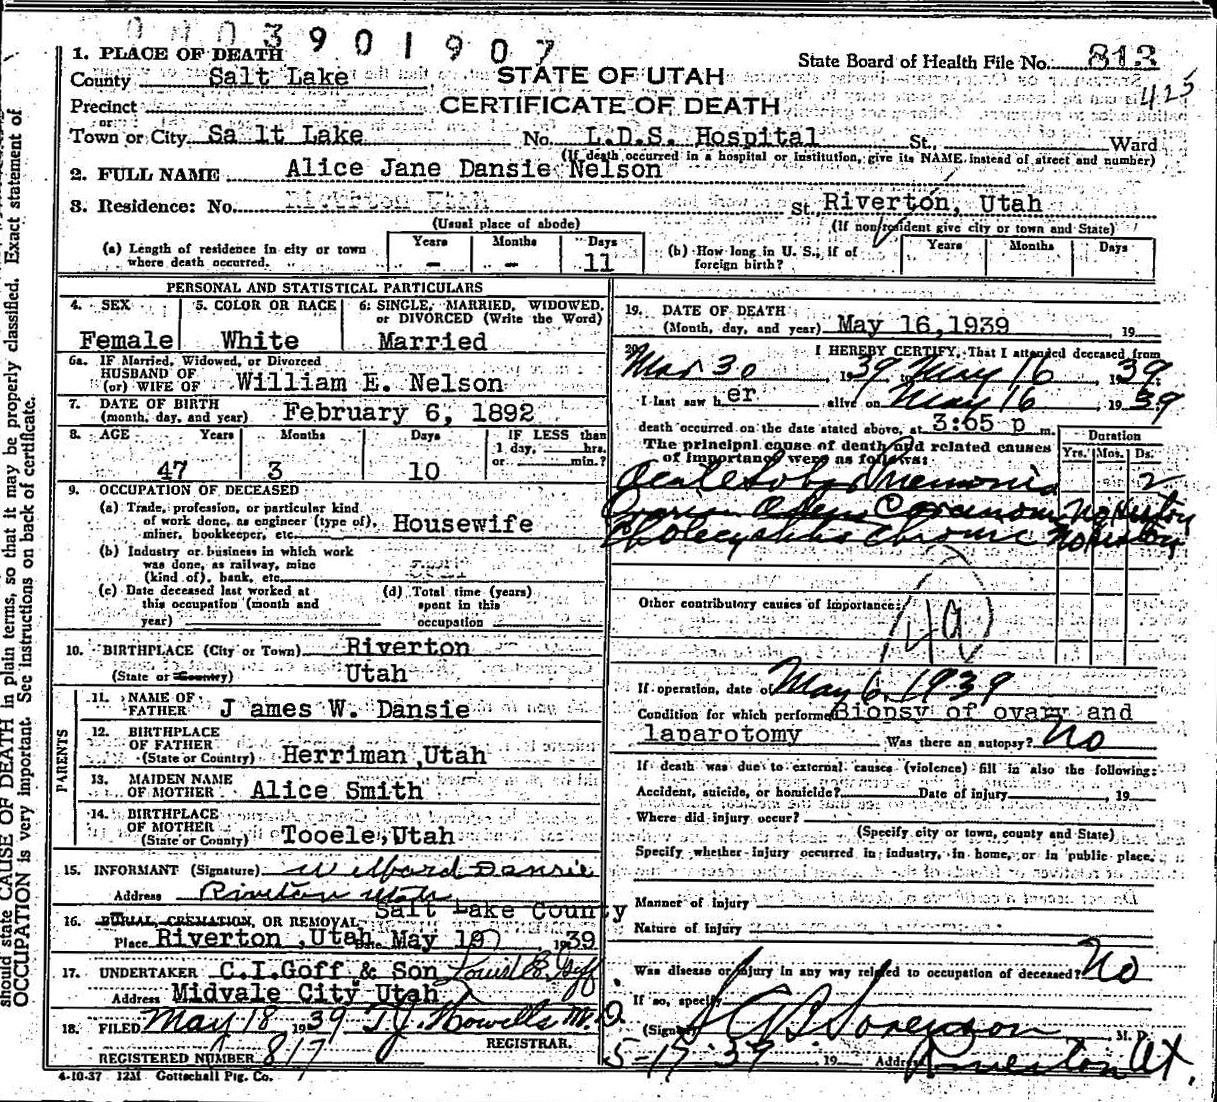 0003901907
1. PLACE OF DEATH
County Salt Lake STATE OF UTAH State Board of Health File No. 813
Precinct CERTIFICATE OF DEATH 425
or
Town or City Sa lt Lake No. L.D.S. Hospital St., Ward
(If death occurred in a hospital or institution, give its NAME instead of street and number)
2. FULL NAME Alice Jane Dansie Nelson
3. Residence: No. Riverton Utah St. Riverton, Utah
(Usual place of abode) (If nonresident give city or town and State)
(a) Length of residence in city or town where death occurred. Years - Months - Days 11 (b) How long in U. S., if of foreign birth? Years Months Days
PERSONAL AND STATISTICAL PARTICULARS
4. SEX 5. COLOR OR RACE 6. SINGLE, MARRIED, WIDOWED, or DIVORCED (Write the Word)
Female White Married
6a. IF Married, Widowed, or Divorced
HUSBAND OF
(or) WIFE OF William E. Nelson
7. DATE OF BIRTH
(month, day, and year) February 6, 1892
8. AGE Years Months Days IF LESS than
1 day, hrs.
or min.?
47 3 10
9. OCCUPATION OF DECEASED
(a) Trade, profession, or particular kind
of work done, as engineer (type of), Housewife
miner, bookkeeper, etc.
(b) Industry or business in which work
was done, as railway, mine
(kind of), bank, etc.
(c) Date deceased last worked at
this occupation (month and
year)
(d) Total time (years)
spent in this
occupation
10. BIRTHPLACE (City or Town) Riverton
(State or Country) Utah
PARENTS
11. NAME OF
FATHER J ames W. Dansie
12. BIRTHPLACE
OF FATHER
(State or Country) Herriman, Utah
13. MAIDEN NAME
OF MOTHER Alice Smith
14. BIRTHPLACE
OF MOTHER
(State or County) Tooele, Utah
15. INFORMANT (Signature) Wilford Dansie
Address Riverton Utah
16. BURIAL, CREMATION, OR REMOVAL Salt Lake County
Place Riverton ,Utah Date May 19 1939
17. UNDERTAKER C.I.Goff & Son Louis E. Goff
Address Midvale City Utah
18. FILED May 18 1939 T.J. Howells M.D.
REGISTRAR.
REGISTERED NUMBER 817
4-10-37 12M Gottschall Ptg. Co.
19. DATE OF DEATH
(Month, day, and year) May 16,1939 , 19
20. I HEREBY CERTIFY, That I attended deceased from
Mar 30 , 1939 to May 16 , 1939;
I last saw her alive on May 16 , 1939
death occurred on the date stated above, at 3:55 p m.
The principal cause of death and related causes
of importance were as follows:
Duration
Yrs. Mos. Ds.
Acute Lobar Pneumonia 2
Ovarian Adeno Carcinoma No History
Cholecystitis Chronic No History
Other contributory causes of importance:
49
If operation, date of May 6, 1939
Condition for which performed Biopsy of ovary and
laparotomy Was there an autopsy? No
If death was due to external causes (violence) fill in also the following:
Accident, suicide, or homicide? Date of injury , 19
Where did injury occur?
(Specify city or town, county and State)
Specify whether injury occurred in industry, in home, or in public place.
Manner of injury
Nature of injury
Was disease or injury in any way related to occupation of deceased? No
If so, specify
(Signed) Sorenson M. D.
5-17-39 19 Address Riverton Ut.
should state CAUSE OF DEATH in plain terms, so that it may be properly classified. Exact statement of
OCCUPATION is very important. See instructions on back of certificate.